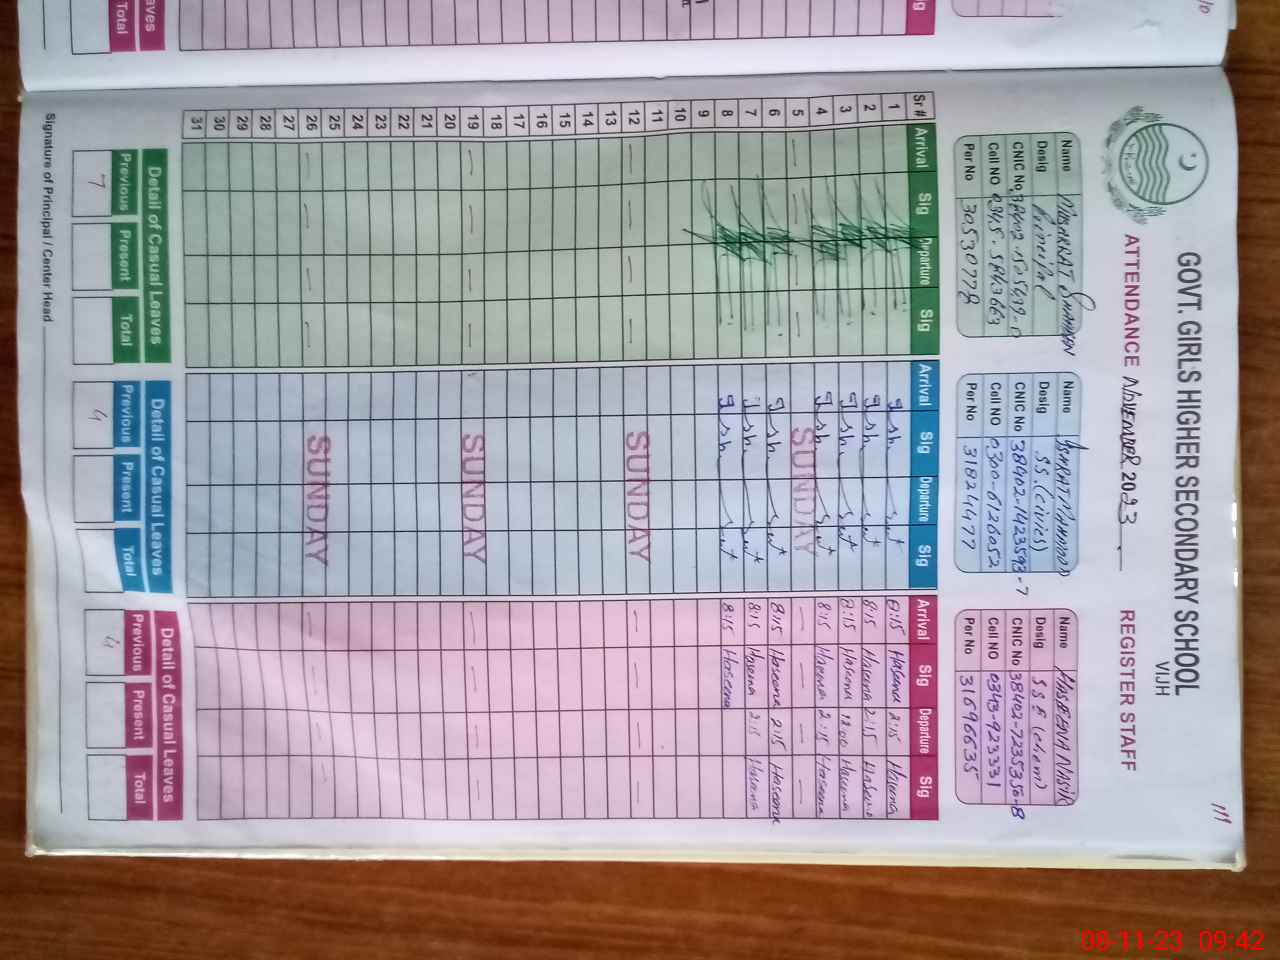 GOVT. GIRLS HIGHER SECONDARY SCHOOL
VIJH
ATTENDANCE NOVEMBER 2023 REGISTER STAFF
Name MUSARRAT
Desig Principal
CNIC No
Cell NO 0345-5843663
Per No 30530778
Name ISHRAT MAHMOOD
Desig SS.(civics)
CNIC No 38402-1423593-7
Cell NO 0300-6126052
Per No 31824477
Name HASEENA NASIR
Desig SSE (chem)
CNIC No 38402-7235350-8
Cell NO 0343-9233331
Per No 31696635
Sr# Arrival Sig Departure Sig Arrival Sig Departure Sig Arrival Sig Departure Sig
1 8:15 Haseena 2:15 Haseena
2 8:15 Haseena 2:15 Haseena
3 8:15 Haseena 12:00 Haseena
4 8:15 Haseena 2:15 Haseena
5 — — — — SUNDAY — — — —
6 8:15 Haseena 2:15 Haseena
7 8:15 Haseena 2:15 Haseena
8 8:15 Haseena
9
10
11
12 — — — — SUNDAY — — — —
13
14
15
16
17
18
19 — — — — SUNDAY — — — —
20
21
22
23
24
25
26 — — — — SUNDAY — — — —
27
28
29
30
31
Detail of Casual Leaves Detail of Casual Leaves Detail of Casual Leaves
Previous Present Total Previous Present Total Previous Present Total
7 4 4
Signature of Principal / Center Head
08-11-23 09:42